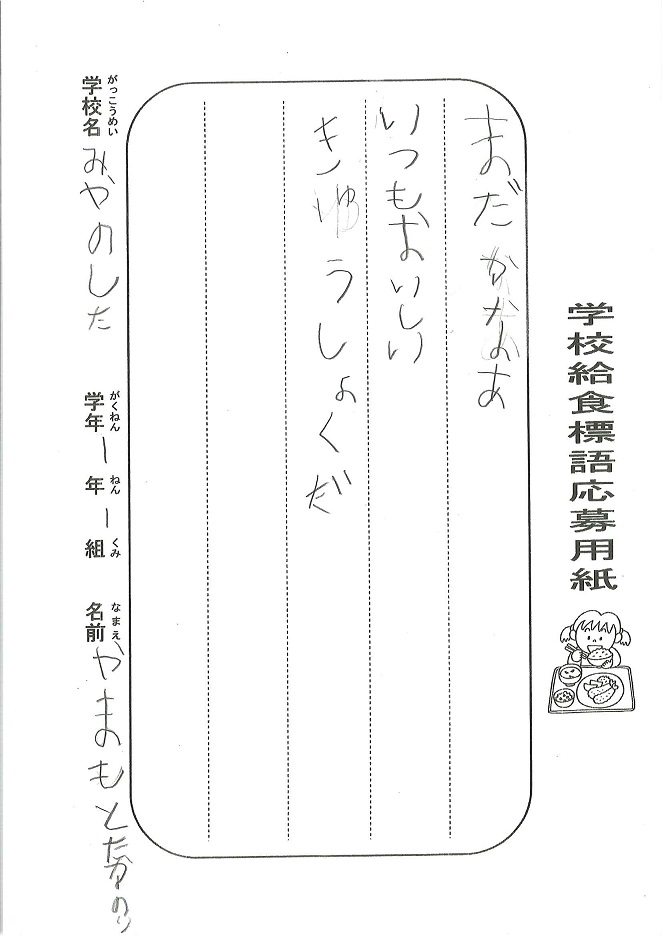 学校給食標語応募用紙
まだかなあ
いつもおいしい
きゅうしょくだ
学校名 がっこうめい みやのした 学年 がくねん 1年 ねん 1組 くみ 名前 なまえ やまもとたかのり